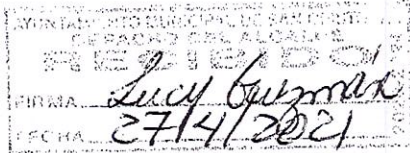 AYUNTAMIENTO MUNICIPAL DE SAN
DESPACHO DEL ALCALDE
RECIBIDO
FIRMA Lucy Guzmán
FECHA 27/4/2021